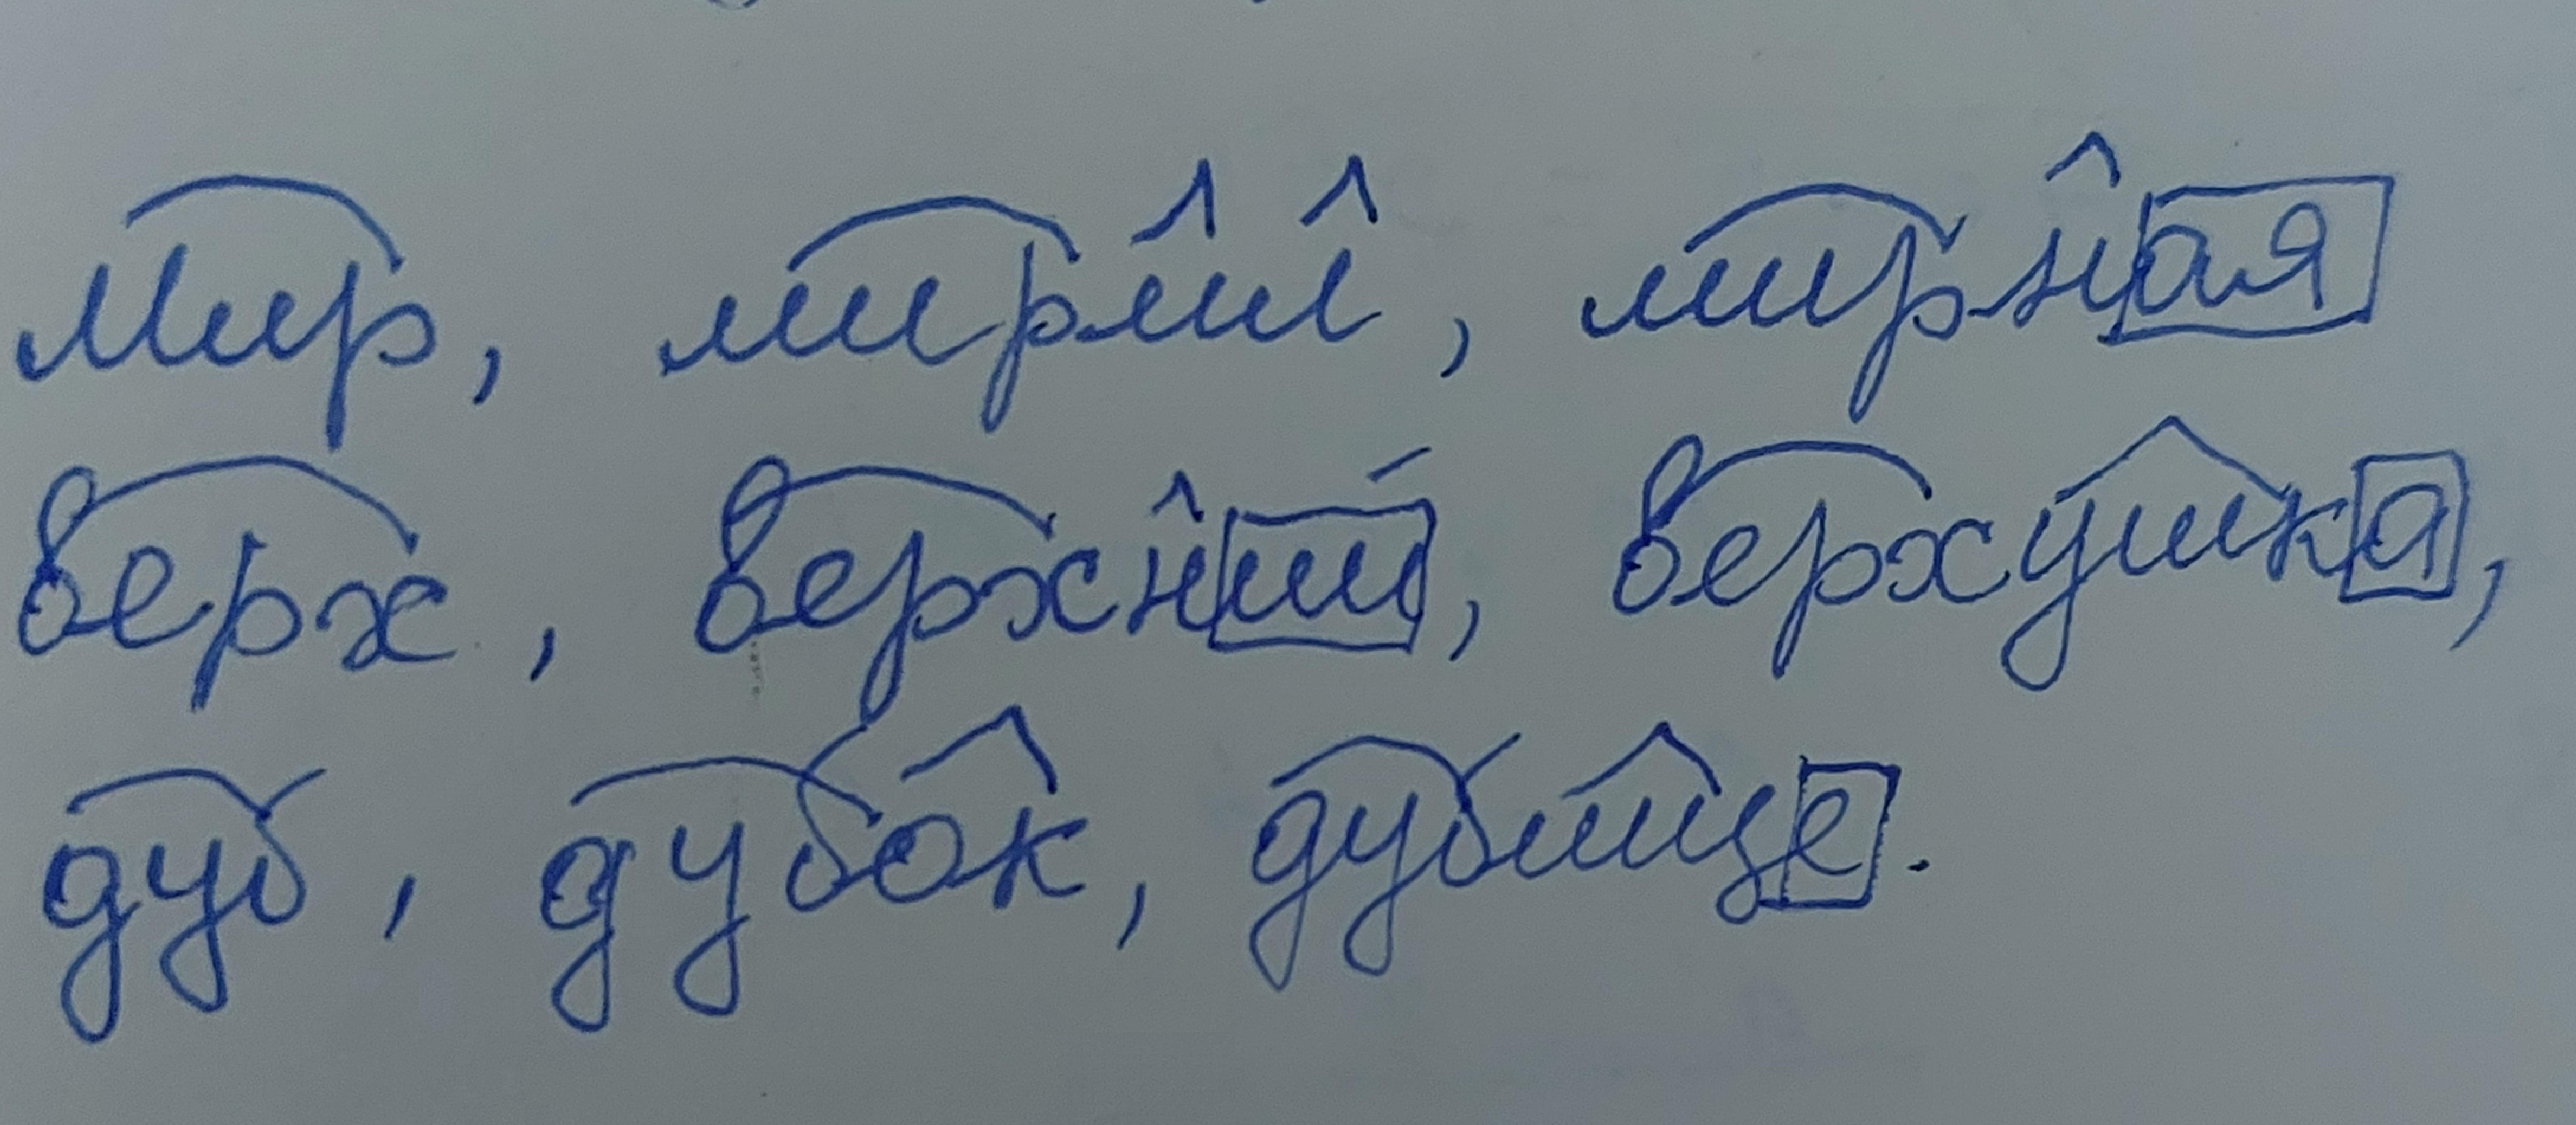 мир, мирил, мирная
верх, верхний, верхушка,
дуб, дубок, дубище.